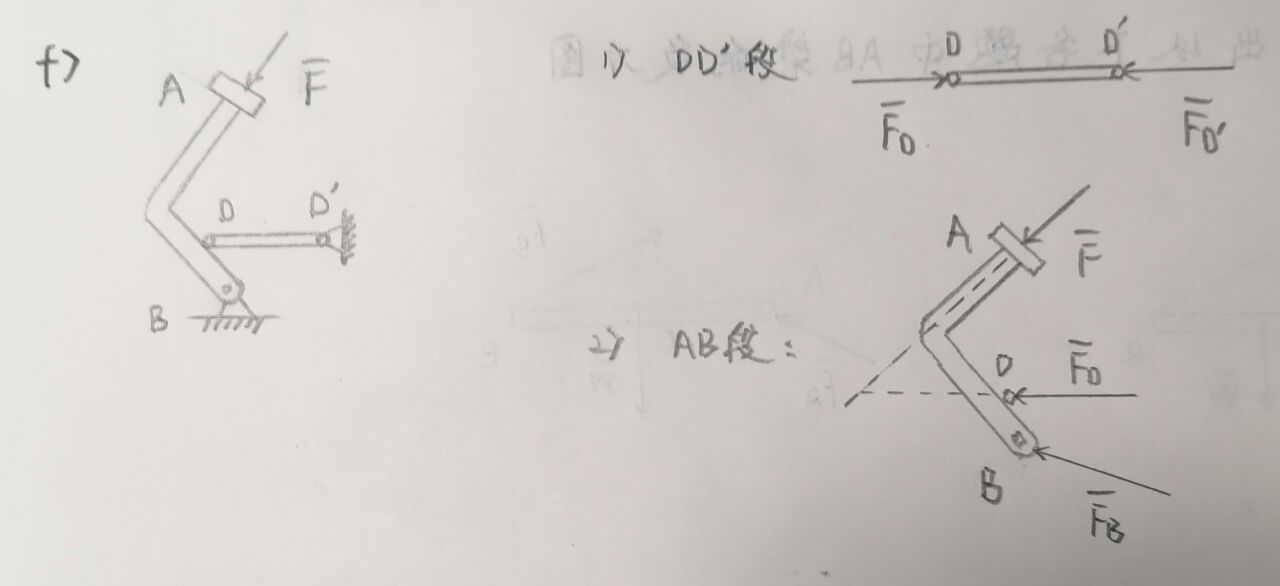 f)
A
F̅
D
D'
B
1) DD'段
D
D'
F̅D
F̅D'
2) AB段：
A
F̅
D
F̅D
B
F̅B